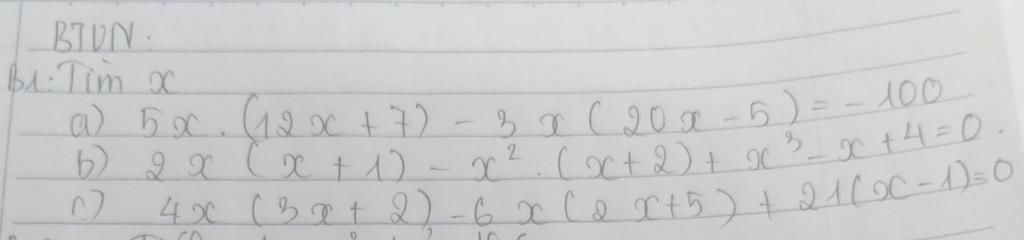 BTVN.
B1: Tìm x
a) 5x . (12x + 7) - 3x ( 20x - 5 ) = - 100
b) 2x ( x + 1 ) - x² . ( x + 2 ) + x³ - x + 4 = 0 .
c) 4x ( 3x + 2 ) - 6x ( 2x + 5 ) + 21( x - 1 ) = 0